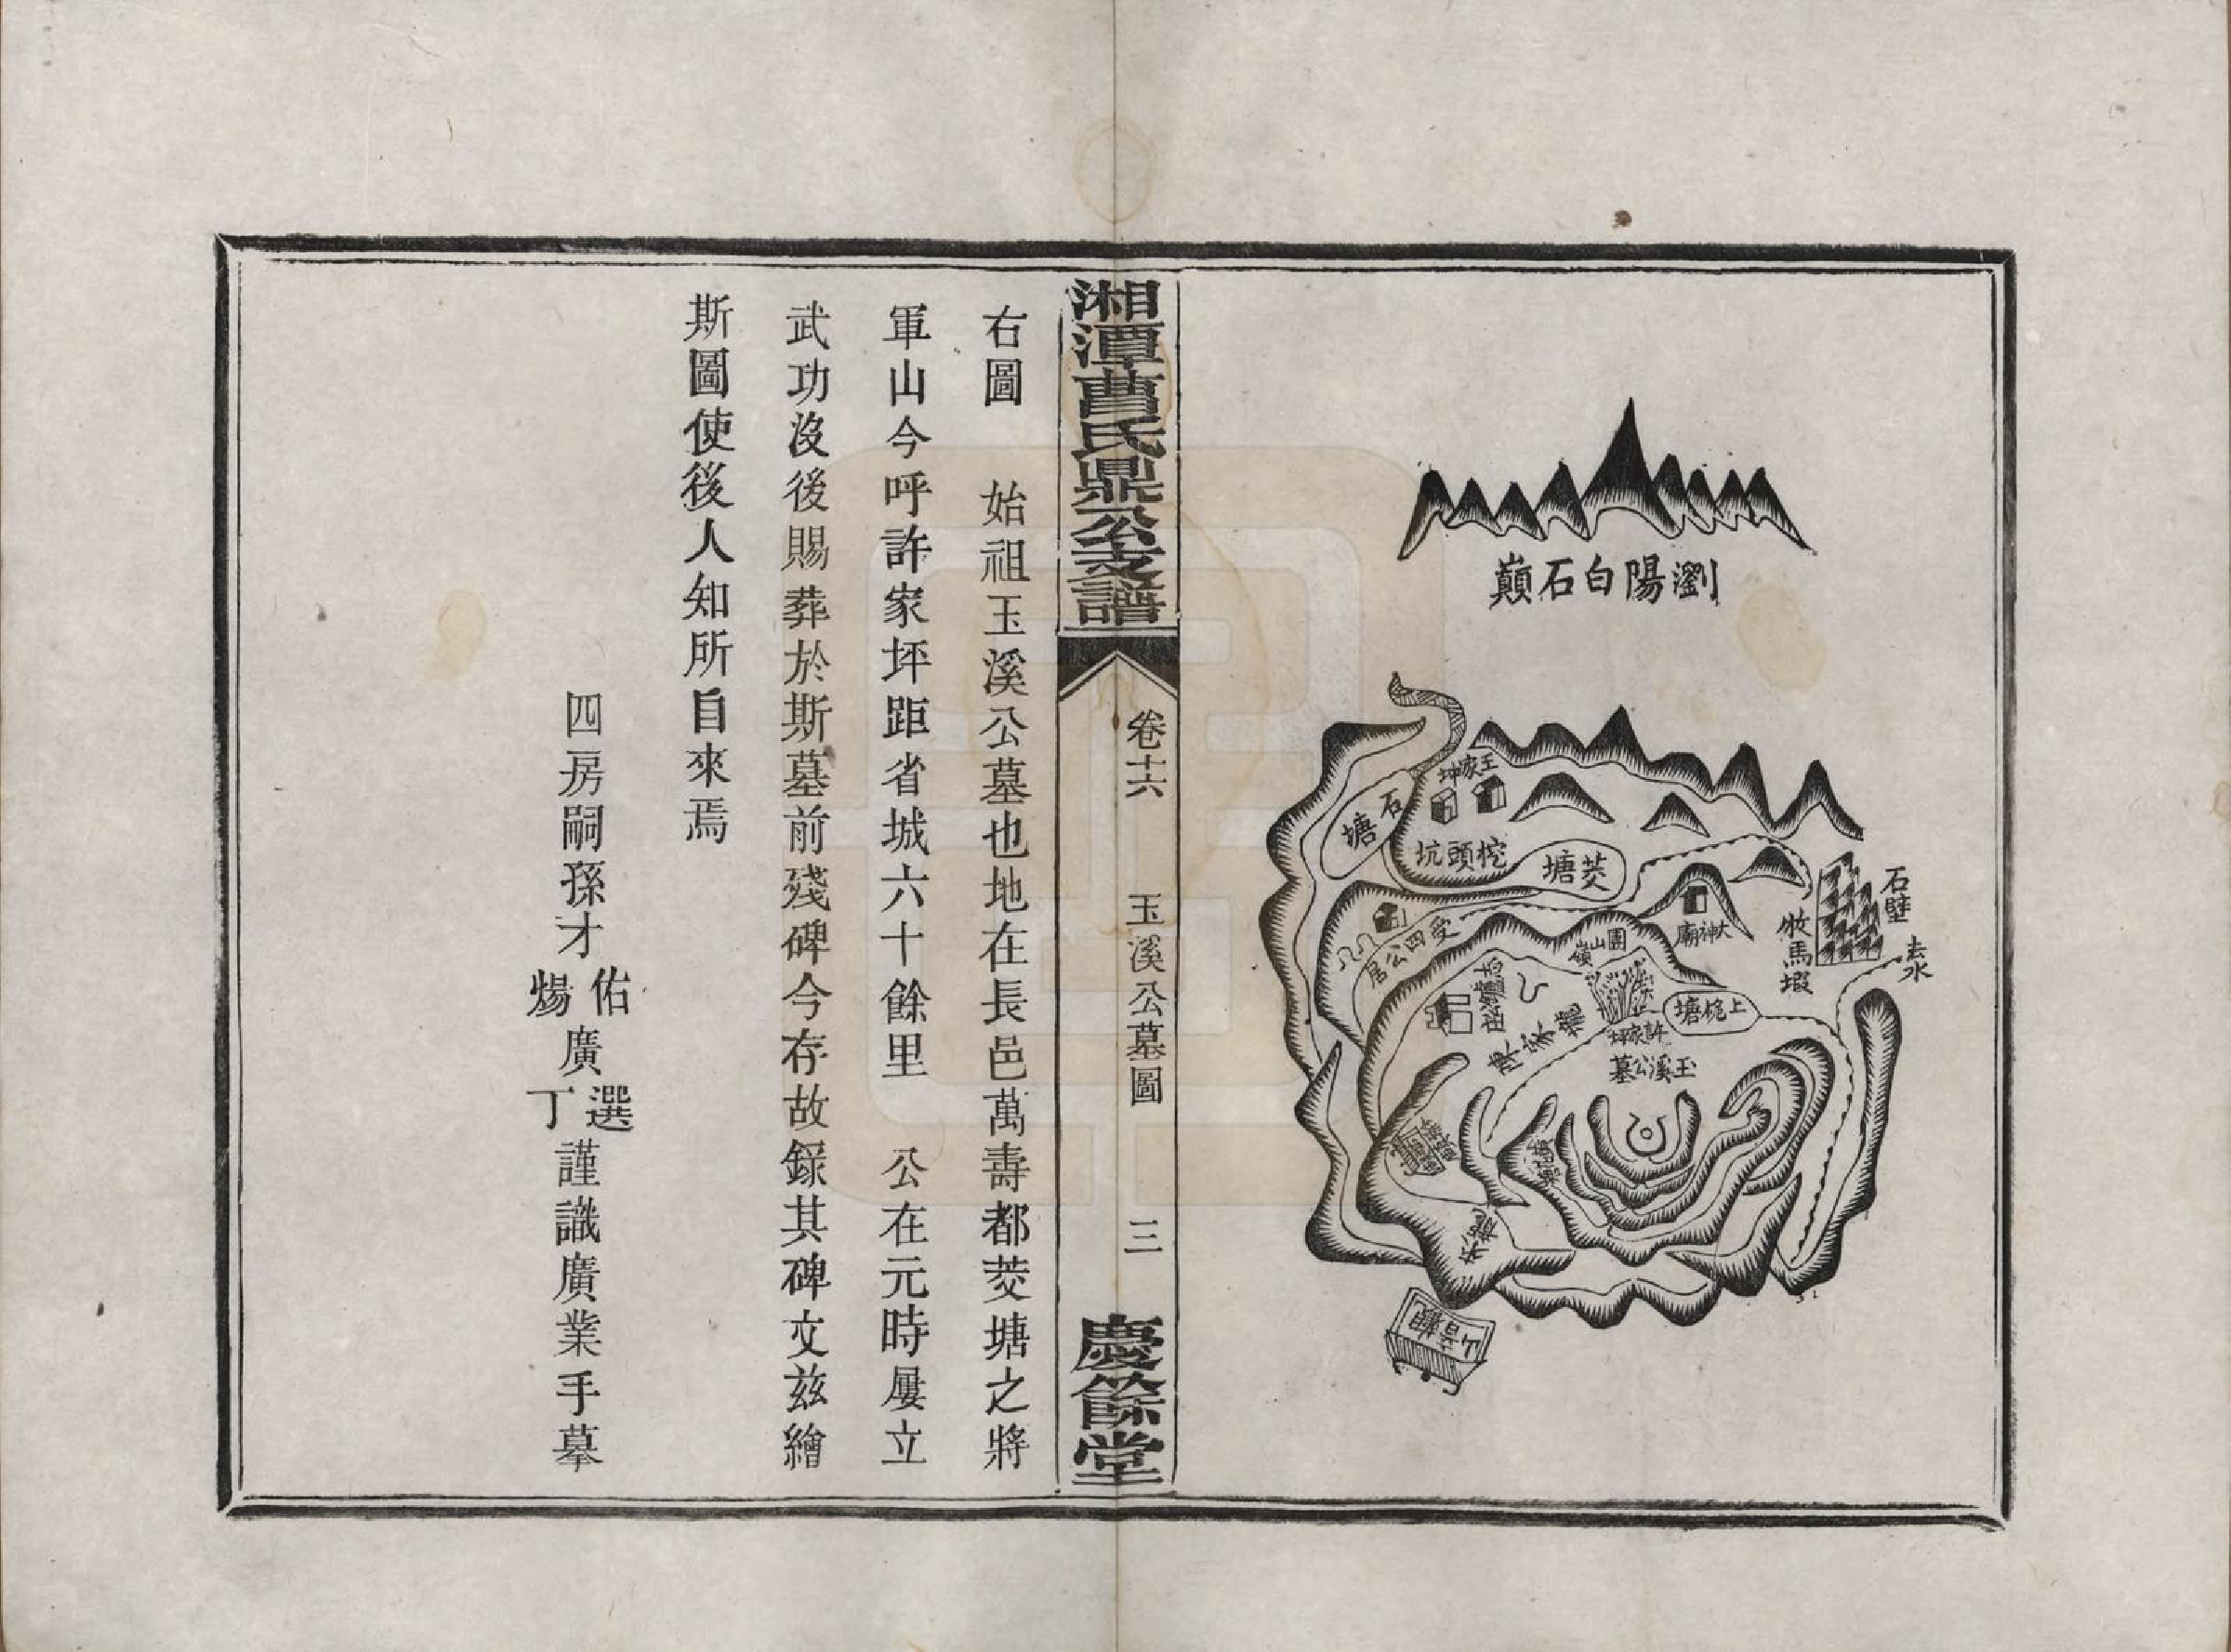 瀏陽白石巔
王家坤
石塘
挖頭坑
茭塘
石壁
去水
牧馬塅
大神廟
團山嶺
受四公居
上桅塘
許家坪
玉溪公墓
觀音山
湘潭曹氏鼎公支譜
卷十六
玉溪公墓圖
三
慶餘堂
右圖　始祖玉溪公墓也地在長邑萬壽都茭塘之將
軍山今呼許家坪距省城六十餘里　公在元時屢立
武功沒後賜葬於斯墓前殘碑今存故錄其碑文茲繪
斯圖使後人知所自來焉
四房嗣孫才佑煬廣選丁謹識廣業手摹